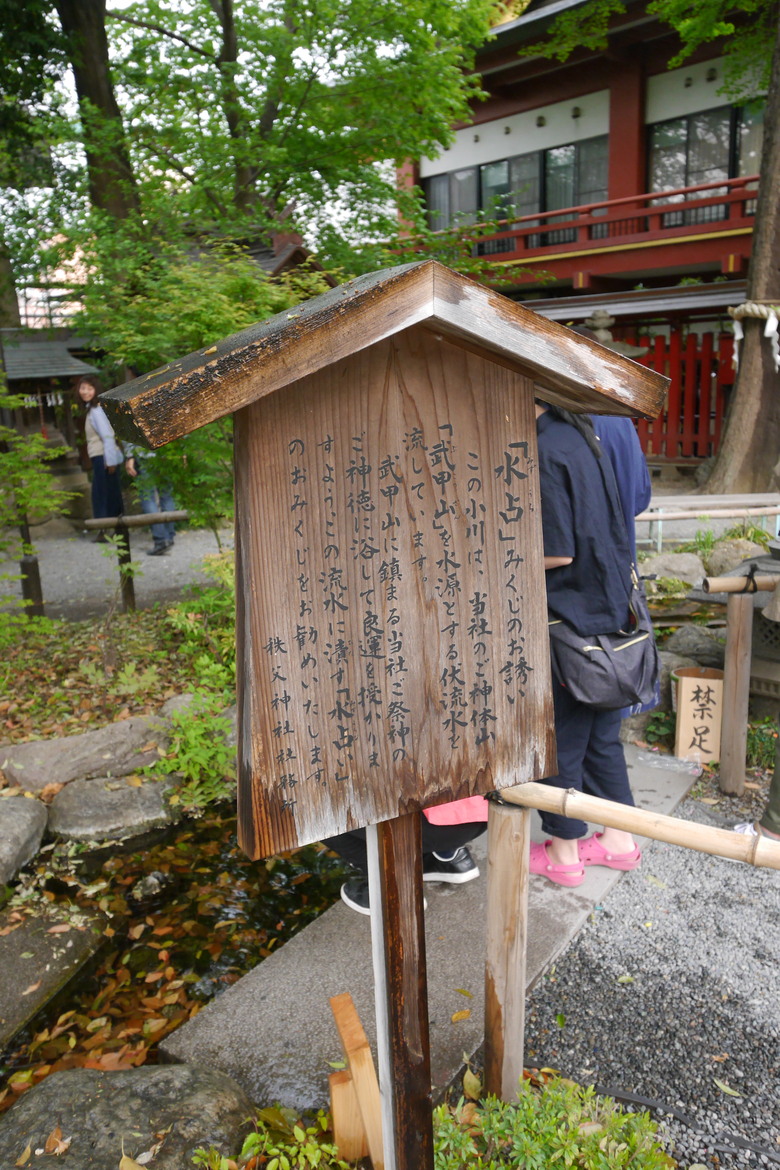 「水占」みくじのお誘い
この小川は、当社のご神体山
「武甲山」を水源とする伏流水を
流しています。
武甲山に鎮まる当社ご祭神の
ご神徳に浴して良運を授かりま
すようこの流水に漬す「水占い」
のおみくじをお勧めいたします。
秩父神社社務所
禁足